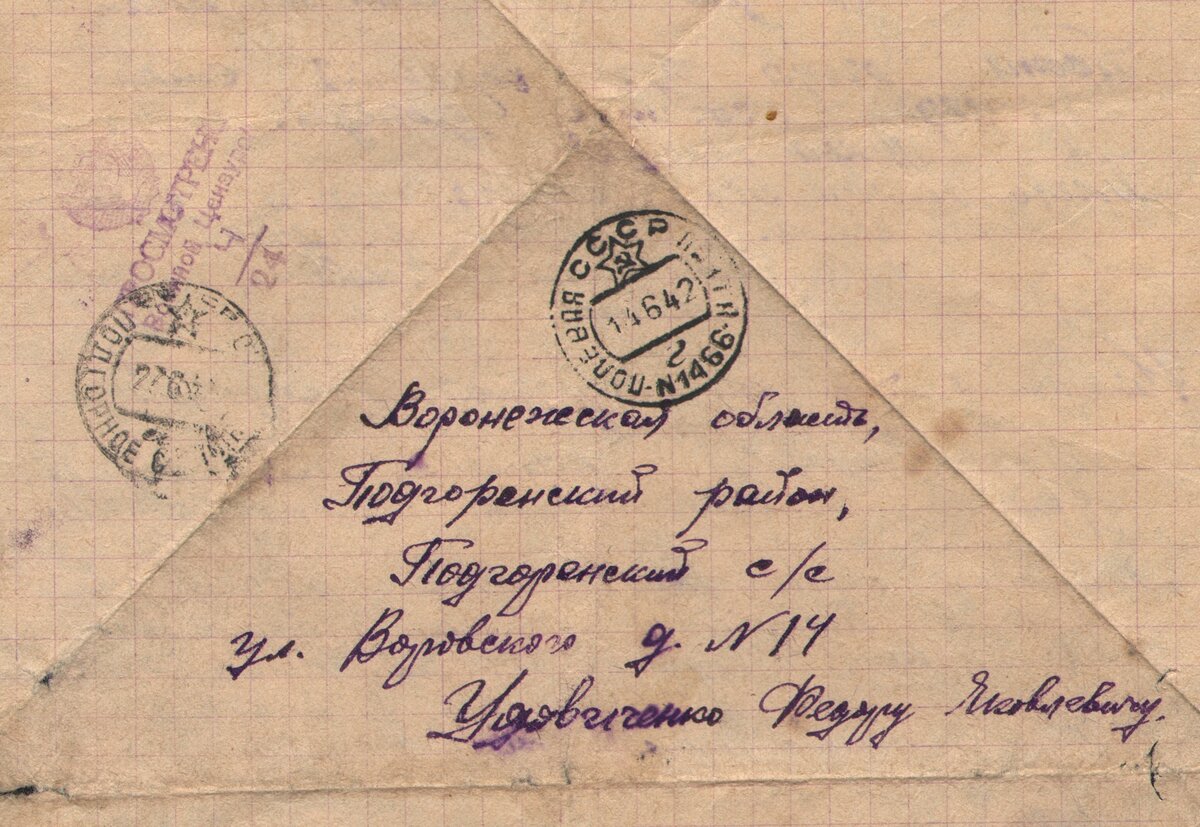 ПРОСМОТРЕНО
Военной Цензурой
4
24
СССР
ПОЛЕВАЯ ПОЧТА
14642
г
N1466
Воронежская область,
Подгоренский район,
Подгоренский с/с
ул. Воровского д. N 14
Удовиченко Федору Яковлевичу.